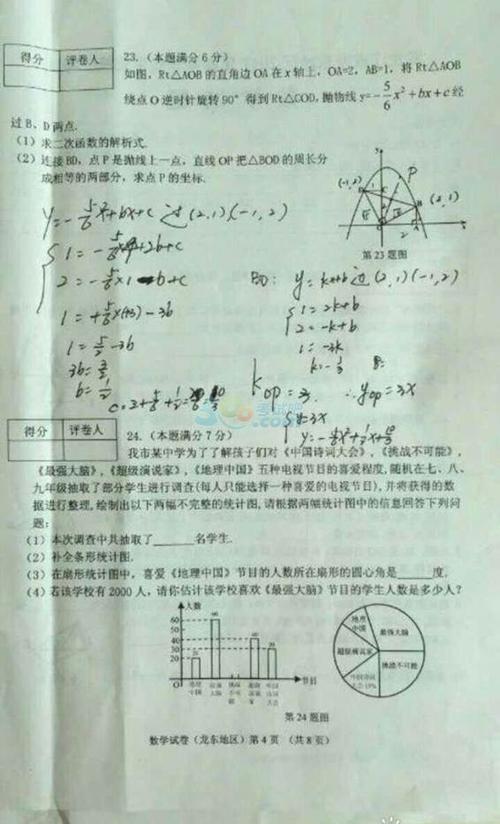 得分 评卷人
23.（本题满分6分）
如图，Rt△AOB的直角边OA在x轴上，OA=2，AB=1，将Rt△AOB
绕点O逆时针旋转90°得到Rt△COD，抛物线y=-5/6x²+bx+c经
过B、D两点.
(1) 求二次函数的解析式.
(2) 连接BD，点P是抛线上一点，直线OP把△BOD的周长分
成相等的两部分，求点P的坐标.
(-1,2)
(2,1)
第23题图
y=-5/6x²+bx+c 过(2,1)(-1,2)
2=-5/6×1-b+c
1=5/2-3b
3b=3/2
b=1/2
BD: y=kx+b过(2,1)(-1,2)
1=2k+b
2=-k+b
1=-3k
k=-1/3
kop=3 ∴yop=3x
y=3x
得分 评卷人
24.（本题满分7分）
我市某中学为了了解孩子们对《中国诗词大会》，《挑战不可能》，
《最强大脑》，《超级演说家》，《地理中国》五种电视节目的喜爱程度，随机在七、八、
九年级抽取了部分学生进行调查(每人只能选择一种喜爱的电视节目)，并将获得的数
据进行整理，绘制出以下两幅不完整的统计图，请根据两幅统计图中的信息回答下列问
题：
(1) 本次调查中共抽取了______名学生.
(2) 补全条形统计图.
(3) 在扇形统计图中，喜爱《地理中国》节目的人数所在扇形的圆心角是______度.
(4) 若该学校有2000人，请你估计该学校喜欢《最强大脑》节目的学生人数是多少人？
人数
60
50
40
30
20
10
O
节目
地理中国
最强大脑
超级演说家
挑战不可能
第24题图
数学试卷（龙东地区）第4页 （共8页）